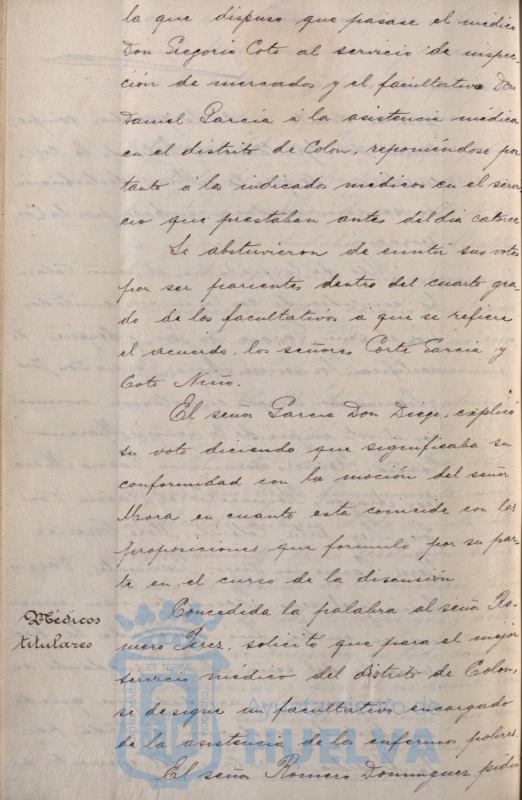 la que dispuso que pasase el médico
Don Gregorio Coto al servicio de inspec-
ción de mercados y el facultativo Don
Daniel García á la asistencia médica
en el distrito de Colon, reponiéndose por
tanto á los indicados médicos en el servi-
cio que prestaban antes del dia catorce
Se abstuvieron de emitir sus votos
por ser parientes dentro del cuarto gra-
do de los facultativos á que se refiere
el acuerdo, los señores Corte García y
Coto Niño.
El señor García Don Diego, explicó
su voto diciendo que significaba su
conformidad con la moción del señor
Mora en cuanto esta coincide con las
proposiciones que formuló por su par-
te en el curso de la discusión
Médicos
titulares
Concedida la palabra al señor Ro-
mero Perez, solicitó que para el mejor
servicio médico del distrito de Colon,
se designe un facultativo encargado
de la asistencia de los enfermos pobres.
El señor Romero Dominguez pidió
Ayuntamiento de
HUELVA